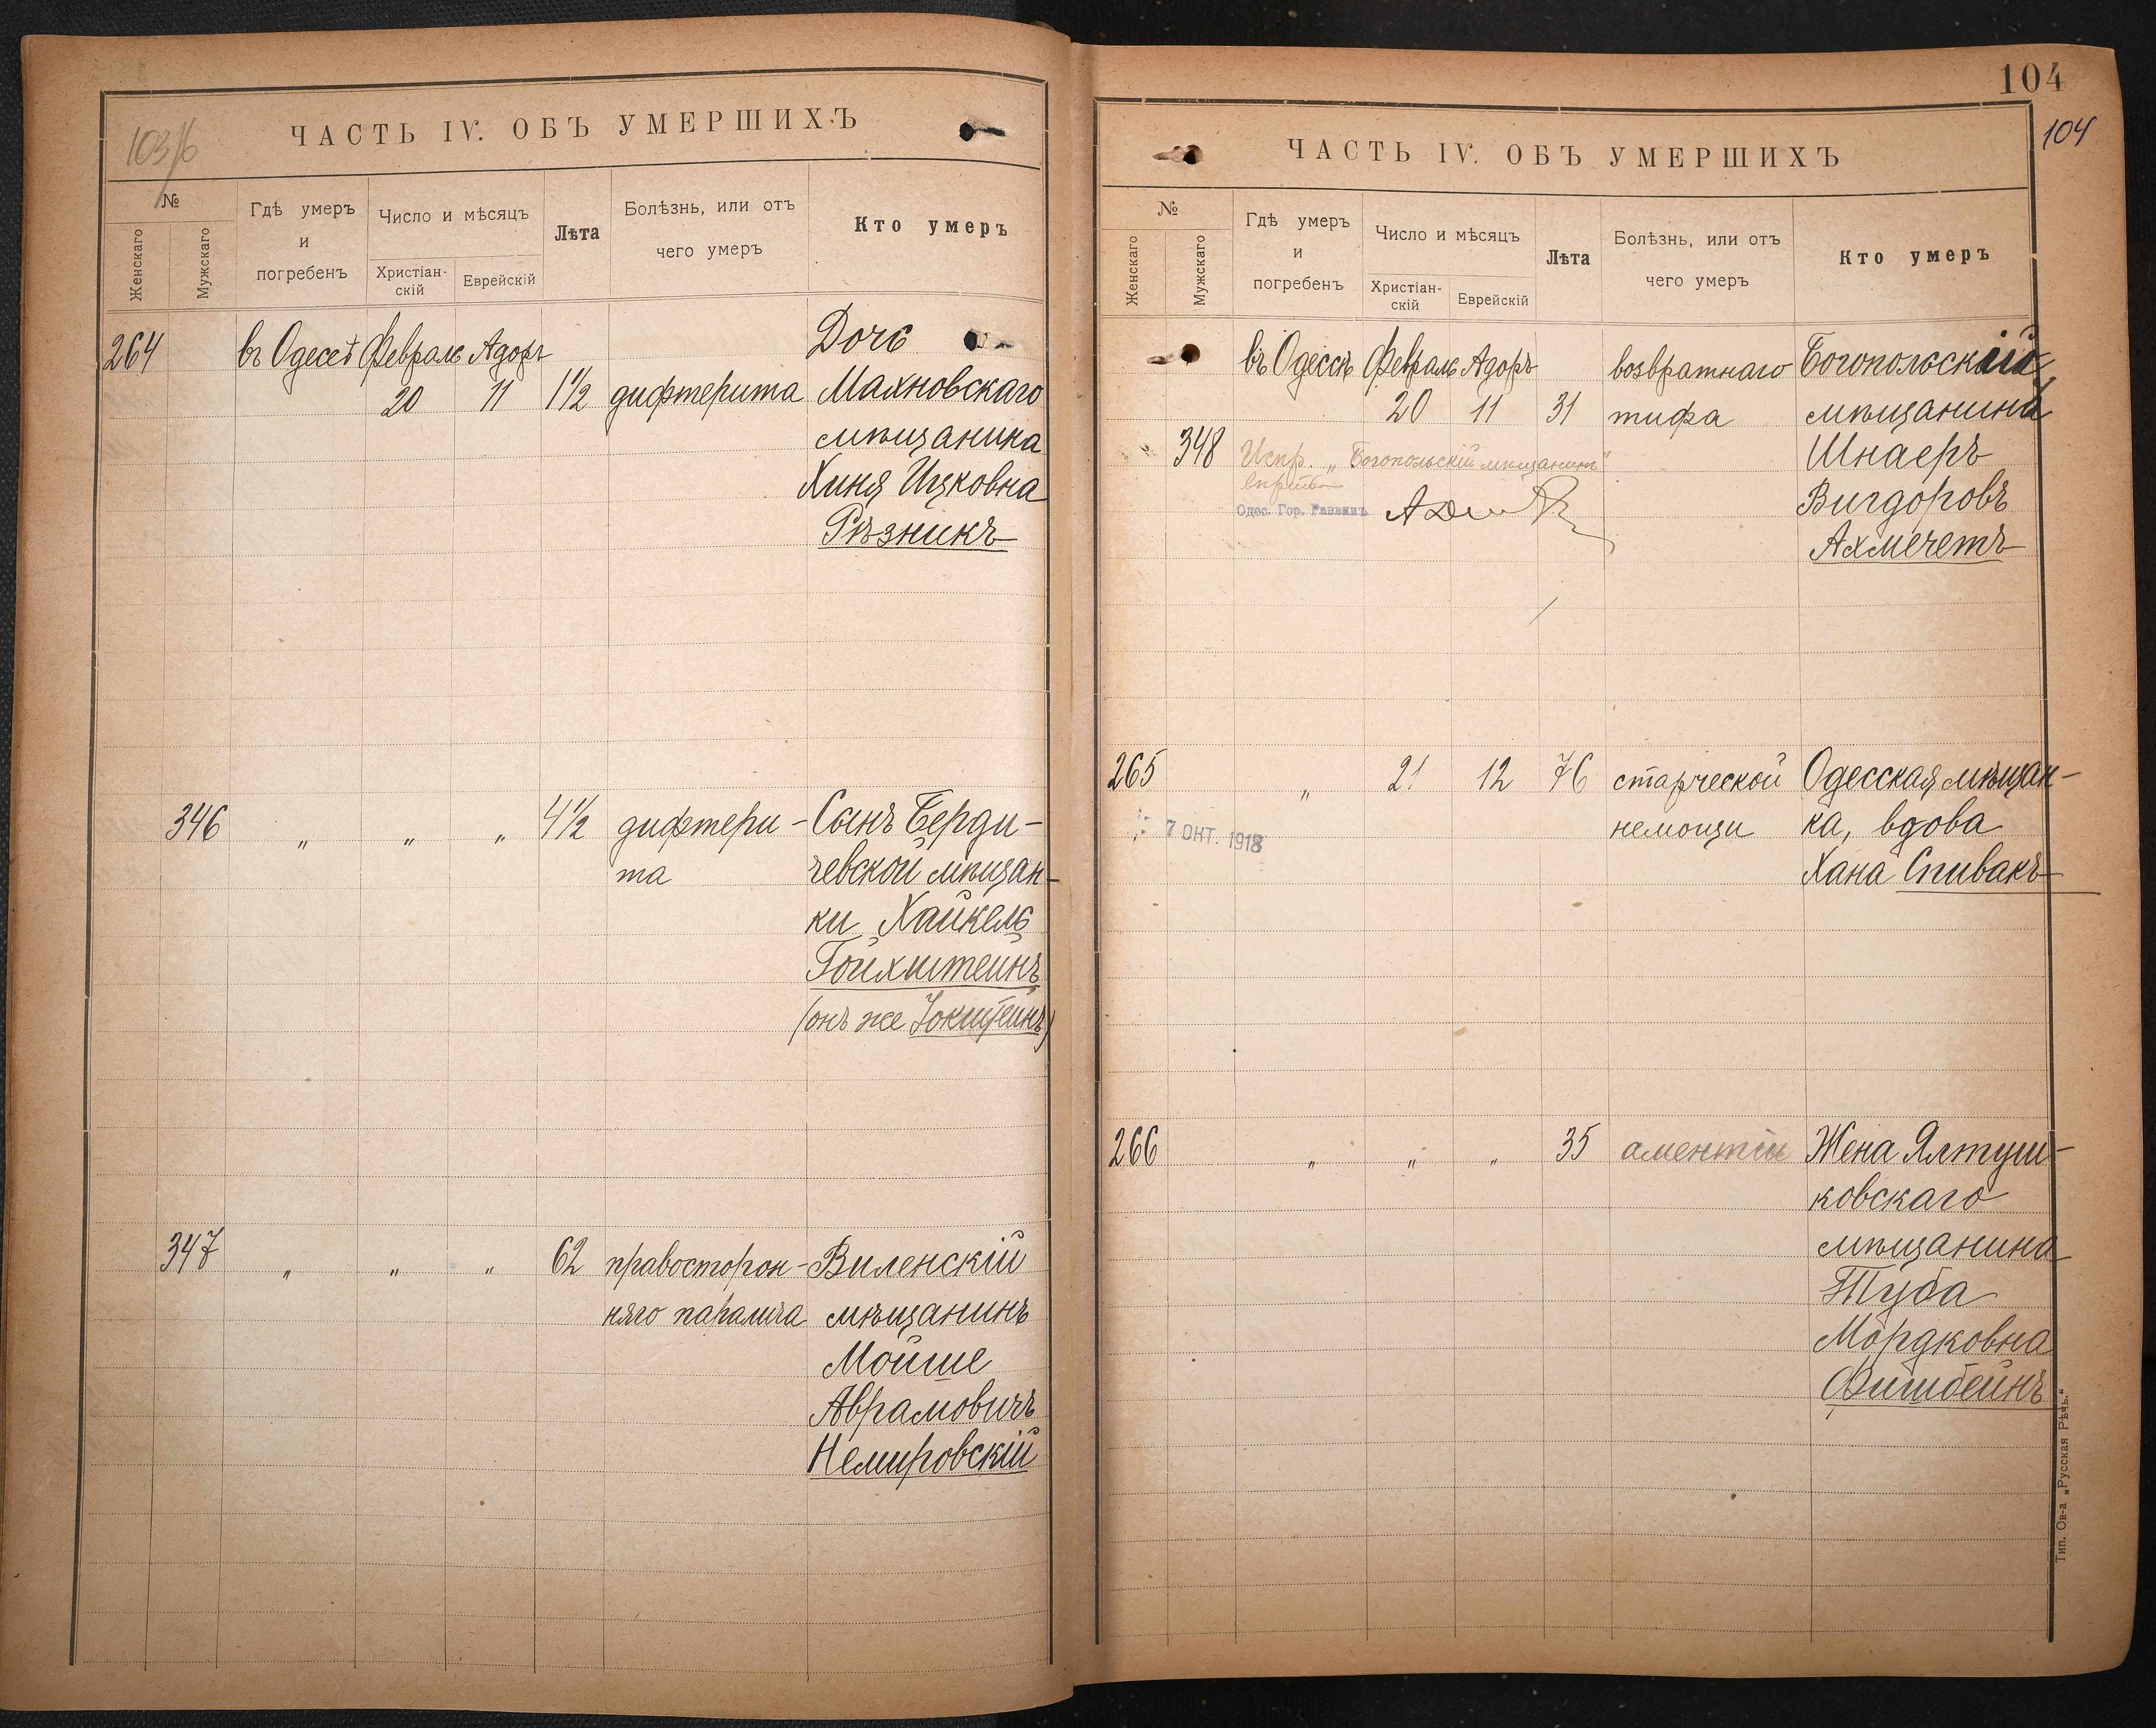 103/б
ЧАСТЬ IV. ОБЪ УМЕРШИХЪ
№
Женскаго
Мужскаго
Гдѣ умеръ
и
погребенъ
Число и мѣсяцъ
Христіан-
скій
Еврейскій
Лѣта
Болѣзнь, или отъ
чего умеръ
Кто умеръ
264 въ Одессѣ Февраль Адоръ Дочь
20 11 1½ дифтерита Махновскаго
мѣщанина
Хиня Ицковна
Рѣзникъ
346 „ „ „ 4½ дифтери- Сынъ Берди-
та чевской мѣщан-
ки Хайкель
Гойхштейнъ
(онъ же Зокштейнъ)
347 „ „ „ 62 правосторон- Виленскій
няго паралича мѣщанинъ
Мойше
Аврамовичъ
Немировскій
104
104
ЧАСТЬ IV. ОБЪ УМЕРШИХЪ
№
Женскаго
Мужскаго
Гдѣ умеръ
и
погребенъ
Число и мѣсяцъ
Христіан-
скій
Еврейскій
Лѣта
Болѣзнь, или отъ
чего умеръ
Кто умеръ
въ Одессѣ Февраль Адоръ возвратнаго Богопольскій
20 11 31 тифа мѣщанинъ
348 Испр. „Богопольскій мѣщанинъ" Шнаеръ
Одес. Гор. Раввинъ Вигдоровъ
Ахмечетъ
265 „ 21 12 76 старческой Одесская мѣщан-
немощи ка, вдова
7 ОКТ. 1918
Хана Спивакъ
266 „ „ „ 35 аментіи Жена Ялтуш-
ковскаго
мѣщанина
Туба
Мордковна
Фишбейнъ
Тип. Ов-а „Русская Рѣчь."